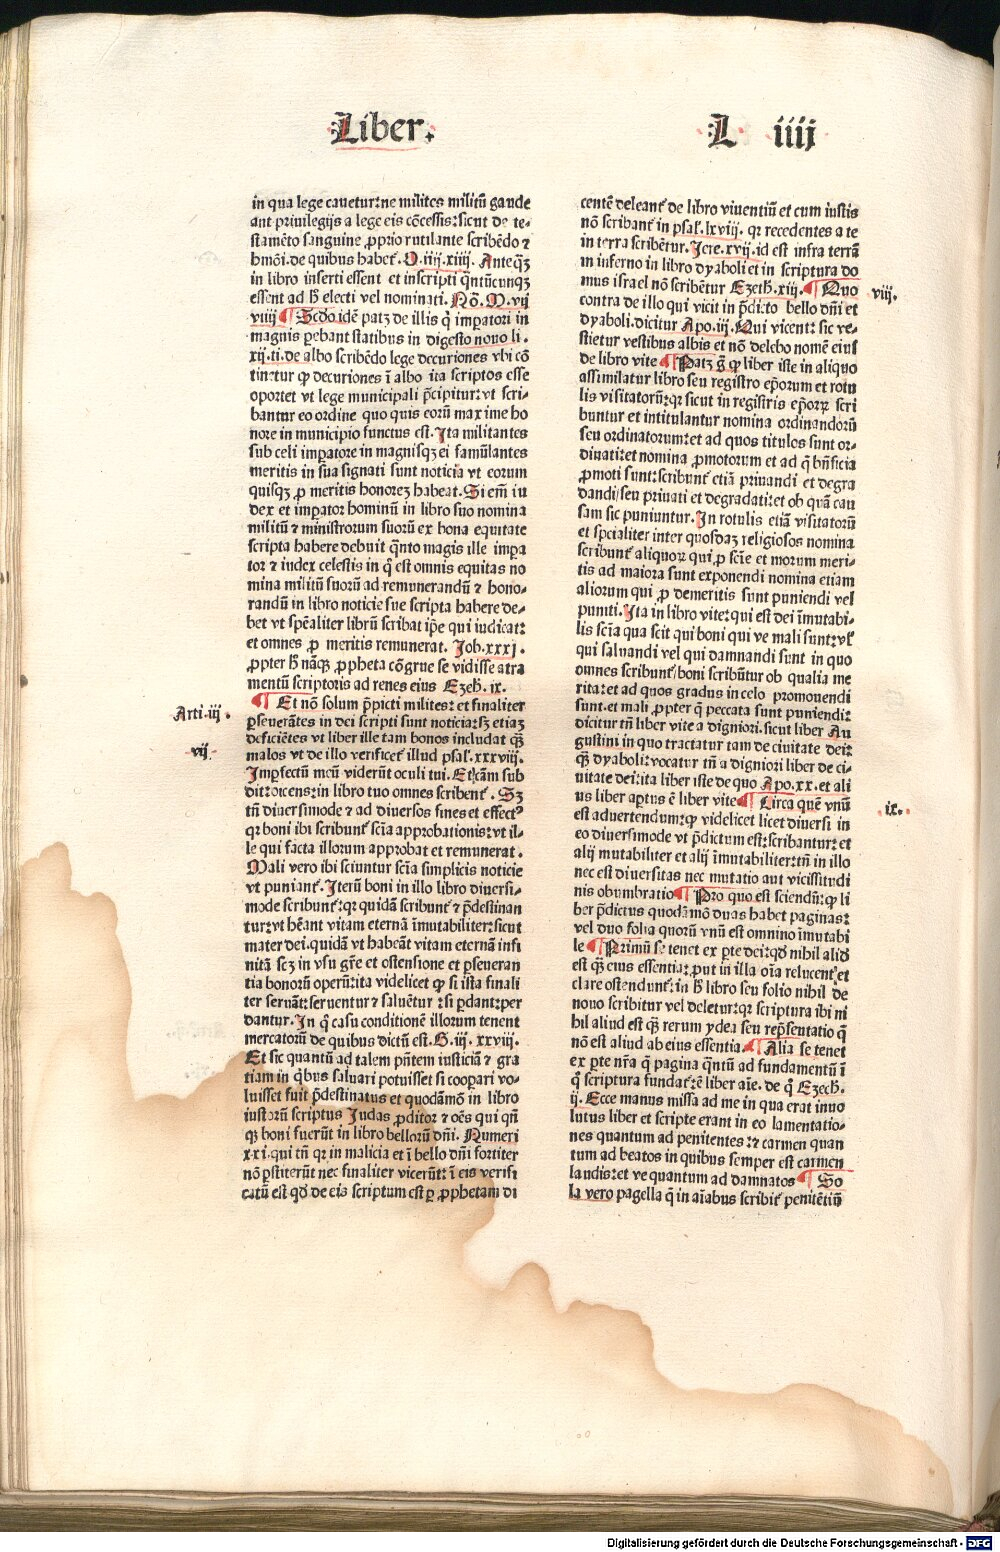 Liber.
L iiij
in qua lege cauetur:ne milites militū gaude
ant priuilegijs a lege eis cōcessis:sicut de te-
stamēto sanguine ꝓprio rutilante scribēdo ⁊
hmōi.de quibus habet᷑. O.iiij.xiiij. Anteqꝫ
in libro inserti essent et inscripti qͥntūcunqꝫ
essent ad h̄ electi vel nominati. Nō. M.vij
viiij ¶ Scd̄o idē patꝫ de illis qͥ imꝑatori in
magnis ꝑebant statibus in digesto nouo li.
xij.ti.de albo scribēdo lege decuriones vbi cō
tinetur ꝙ decuriones ī albo ita scriptos esse
oportet vt lege municipali p̄cipitur:vt scri-
bantur eo ordine quo quis eorū maxime ho
nore in municipio functus est.Ita militantes
sub celi imꝑatore in magnisqꝫ ei famūlantes
meritis in sua signati sunt noticia vt eorum
quisqꝫ ꝓ meritis honoreꝫ habeat.Si em̄ iu
dex et imꝑator hominū in libro suo nomina
militū ⁊ ministrorum suorū ex bona equitate
scripta habere debuit qͥnto magis ille impa
tor ⁊ iudex celestis in qͦ est omnis equitas no
mina militū suorū ad remunerandū ⁊ hono-
randū in libro noticie sue scripta habere de-
bet vt spēaliter librū scribat ip̄e qui iudicat:
et omnes ꝓ meritis remunerat. Job.xxxj.
ꝓpter h̄ nāqꝫ ꝓpheta cōgrue se vidisse atra
mentū scriptoris ad renes eius Ezeh.ix.
Arti.iij.
¶ Et nō solum p̄picti milites: et finaliter
ꝑseuerātes in dei scripti sunt noticia:sꝫ etiaꝫ
deficiētes vt liber ille tam bonos includat qꝫ
vij.
malos vt de illo verificet᷑ illud psal.xxxviij.
Imꝑfectū meū viderūt oculi tui. Etcām sub
dit:dicens:in libro tuo omnes scribent᷑. Sꝫ
tn̄ diuersimode ⁊ ad diuersos fines et effectꝰ
qꝛ boni ibi scribunt᷑ scīa approbationis:vt il-
le qui facta illorum approbat et remunerat.
Mali vero ibi sciuntur scīa simplicis noticie
vt puniant᷑.Iterū boni in illo libro diuersi-
mode scribunt᷑:qꝛ quidā scribunt᷑ ⁊ p̄destinan
tur:vt hēant vitam eternā īmutabiliter:sicut
mater dei.quidā vt habeāt vitam eternā infi
nitā scꝫ in vsu gr̄e et ostensione et ꝑseueran
tia bonorū operū:ita videlicet ꝙ si ista finali
ter seruāt:seruentur ⁊ saluētur:si ꝑdant:per
dantur.In qͦ casu conditionē illorum tenent
mercatorū de quibus dictū est.G.iij.xxviij.
Et sic quantū ad talem pn̄tem iusticiā ⁊ gra
tiam in qͥbus saluari potuisset si cooꝑari vo-
luisset fuit p̄destinatus et quodāmō in libro
iustorū scriptus Judas ꝓditor ⁊ oēs qui qn̄
qꝫ boni fuerūt in libro bellorū dn̄i. Numeri
xxi.qui tn̄ qꝛ in malicia et ī bello dn̄i fortiter
nō ꝑstiterūt nec finaliter vicerūt: ī eis verifi
catū est qd̄ de eis scriptum est ꝑ ꝓphetam di
centē deleant᷑ de libro viuentiū et cum iustis
nō scribant᷑ in psal.lxviij. qꝛ recedentes a te
in terra scribētur.Jere.xvij.id est infra terrā
in inferno in libro dyaboli et in scriptura do
mus israel nō scribētur Ezech.xiij. ¶ Quo
viij.
contra de illo qui vicit in p̄dicto bello dn̄i et
dyaboli.dicitur Apo.iij.Qui vicent: sic ve-
stietur vestibus albis et nō delebo nomē eius
de libro vite ¶ Patꝫ g̊ ꝙ liber iste in aliquo
assimilatur libro seu registro ep̄orum et rotu
lis visitatorū:qꝛ sicut in registris ep̄orꝝ scri
buntur et intitulantur nomina ordinandorū
seu ordinatorum:et ad quos titulos sunt or-
dinati:et nomina ꝓmotorum et ad qͥ bn̄ficia
ꝓmoti sunt:scribunt᷑ etiā priuandi et degra
dandi/seu priuati et degradati:et ob quā cau
sam sic puniuntur.In rotulis etiā visitatorū
et sp̄cialiter inter quosdaꝫ religiosos nomina
scribunt᷑ aliquorꝝ qui ꝓ scīe et morum meri-
tis ad maiora sunt exponendi nomina etiam
aliorum qui ꝓ demeritis sunt puniendi vel
puniti.Ita in libro vite:qui est dei īmutabi-
lis scīa qua scit qui boni qui ve mali sunt:vl̓
qui saluandi vel qui damnandi sunt in quo
omnes scribunt᷑/boni scribūtur ob qualia me
rita:et ad quos gradus in celo promouendi
sunt.et mali ꝓpter qͥ peccata sunt puniendi:
dicitur tn̄ liber vite a digniori.sicut liber Au
gustini in quo tractatur tam de ciuitate dei:
qꝫ dyaboli:vocatur tn̄ a digniori liber de ci-
uitate dei:ita liber iste de quo Apo.xx.et ali
us liber aꝑtus ē liber vite ¶ Circa quē vnū
ix.
est aduertendum:ꝙ videlicet licet diuersi in
eo diuersimode vt p̄dictum est:scribantur:et
alij mutabiliter et alij īmutabiliter:tn̄ in illo
nec est diuersitas nec mutatio aut vicissitudi
nis obumbratio ¶ Pro quo est sciendū:ꝙ li
ber p̄dictus quodāmō duas habet paginas:
vel duo folia quorū vnū est omnino īmutabi
le ¶ Primū se tenet ex ꝑte dei:qd̄ nihil aliud
est qꝫ eius essentia:ꝓut in illa oīa relucent᷑:et
clare ostendunt᷑: in h̄ libro seu folio nihil de
nouo scribitur vel deletur:qꝛ scriptura ibi ni
hil aliud est qꝫ rerum ydea seu rep̄sentatio qͥ
nō est aliud ab eius essentia. ¶ Alia se tenet
ex ꝑte nr̄a qͥ pagina qͥntū ad fundamentū ī
qͦ scriptura fundat᷑:ē liber aīe. de qͦ Ezech.
ij. Ecce manus missa ad me in qua erat inuo
lutus liber et scripte erant in eo lamentatio-
nes quantum ad penitentes:⁊ carmen quan
tum ad beatos in quibus semper est carmen
laudis:et ve quantum ad damnatos ¶ So
la vero pagella qͥ in aīabus scribit᷑ penitētiū
Digitalisierung gefördert durch die Deutsche Forschungsgemeinschaft - DFG